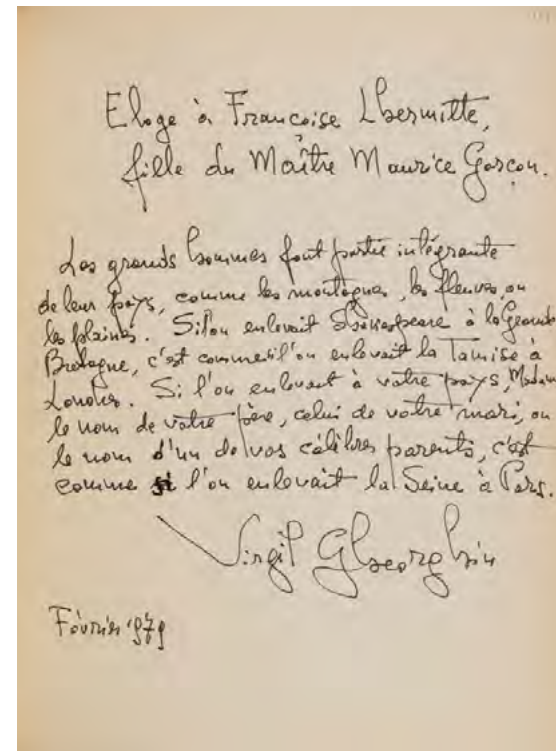 Eloge à Françoise Lhermitte,
fille du Maître Maurice Garçon.
Les grands hommes font partie intégrante
de leur pays, comme les montagnes, les fleuves, ou
les plaines. Si l'on enlevait Shakespeare à la Grande
Bretagne, c'est comme si l'on enlevait la Tamise à
Londres. Si l'on enlevait à votre pays, Madame
le nom de votre père, celui de votre mari, ou
le nom d'un de vos célèbres parents, c'est
comme si l'on enlevait la Seine à Paris.
Virgil Gheorghiu
Février 1979